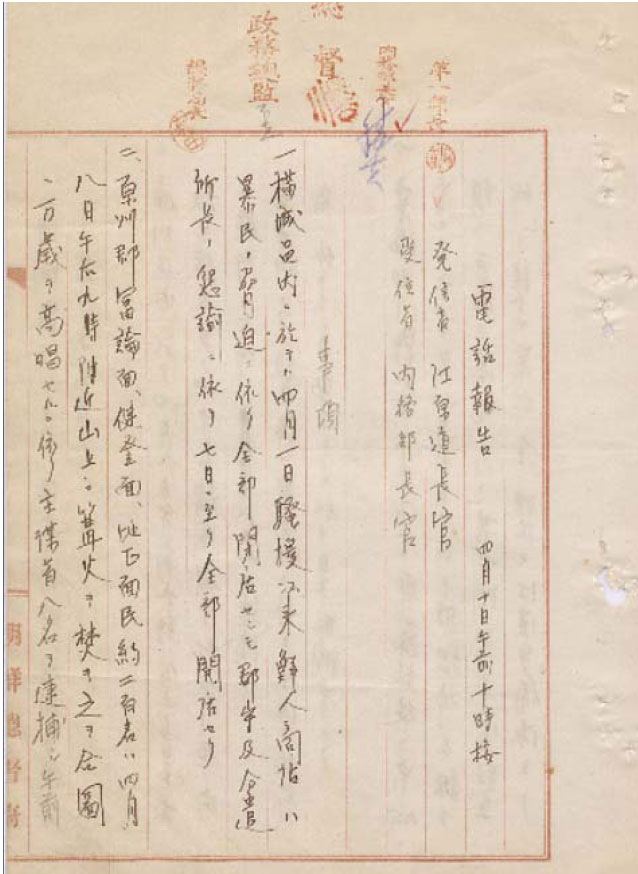 總督
政務總監
第一課長
電話報告 四月十日午前十時接
発信者 江原道長官
受信者 内務部長官
事項
一、横城邑内ニ於テハ四月一日騒擾以来鮮人商店ハ
暴民ノ脅迫ニ依リ全部閉店セシモ郡守及分遣
所長ノ懇諭ニ依リ七日ニ至リ全部開店セリ
二、原州郡富論面、 面民約二百名ハ四月
八日午后九時附近山上ニ篝火ヲ焚キ之ヲ合図
ニ万歳ヲ高唱セルニ依リ主謀者八名ヲ逮捕シ午前
朝鮮總督府